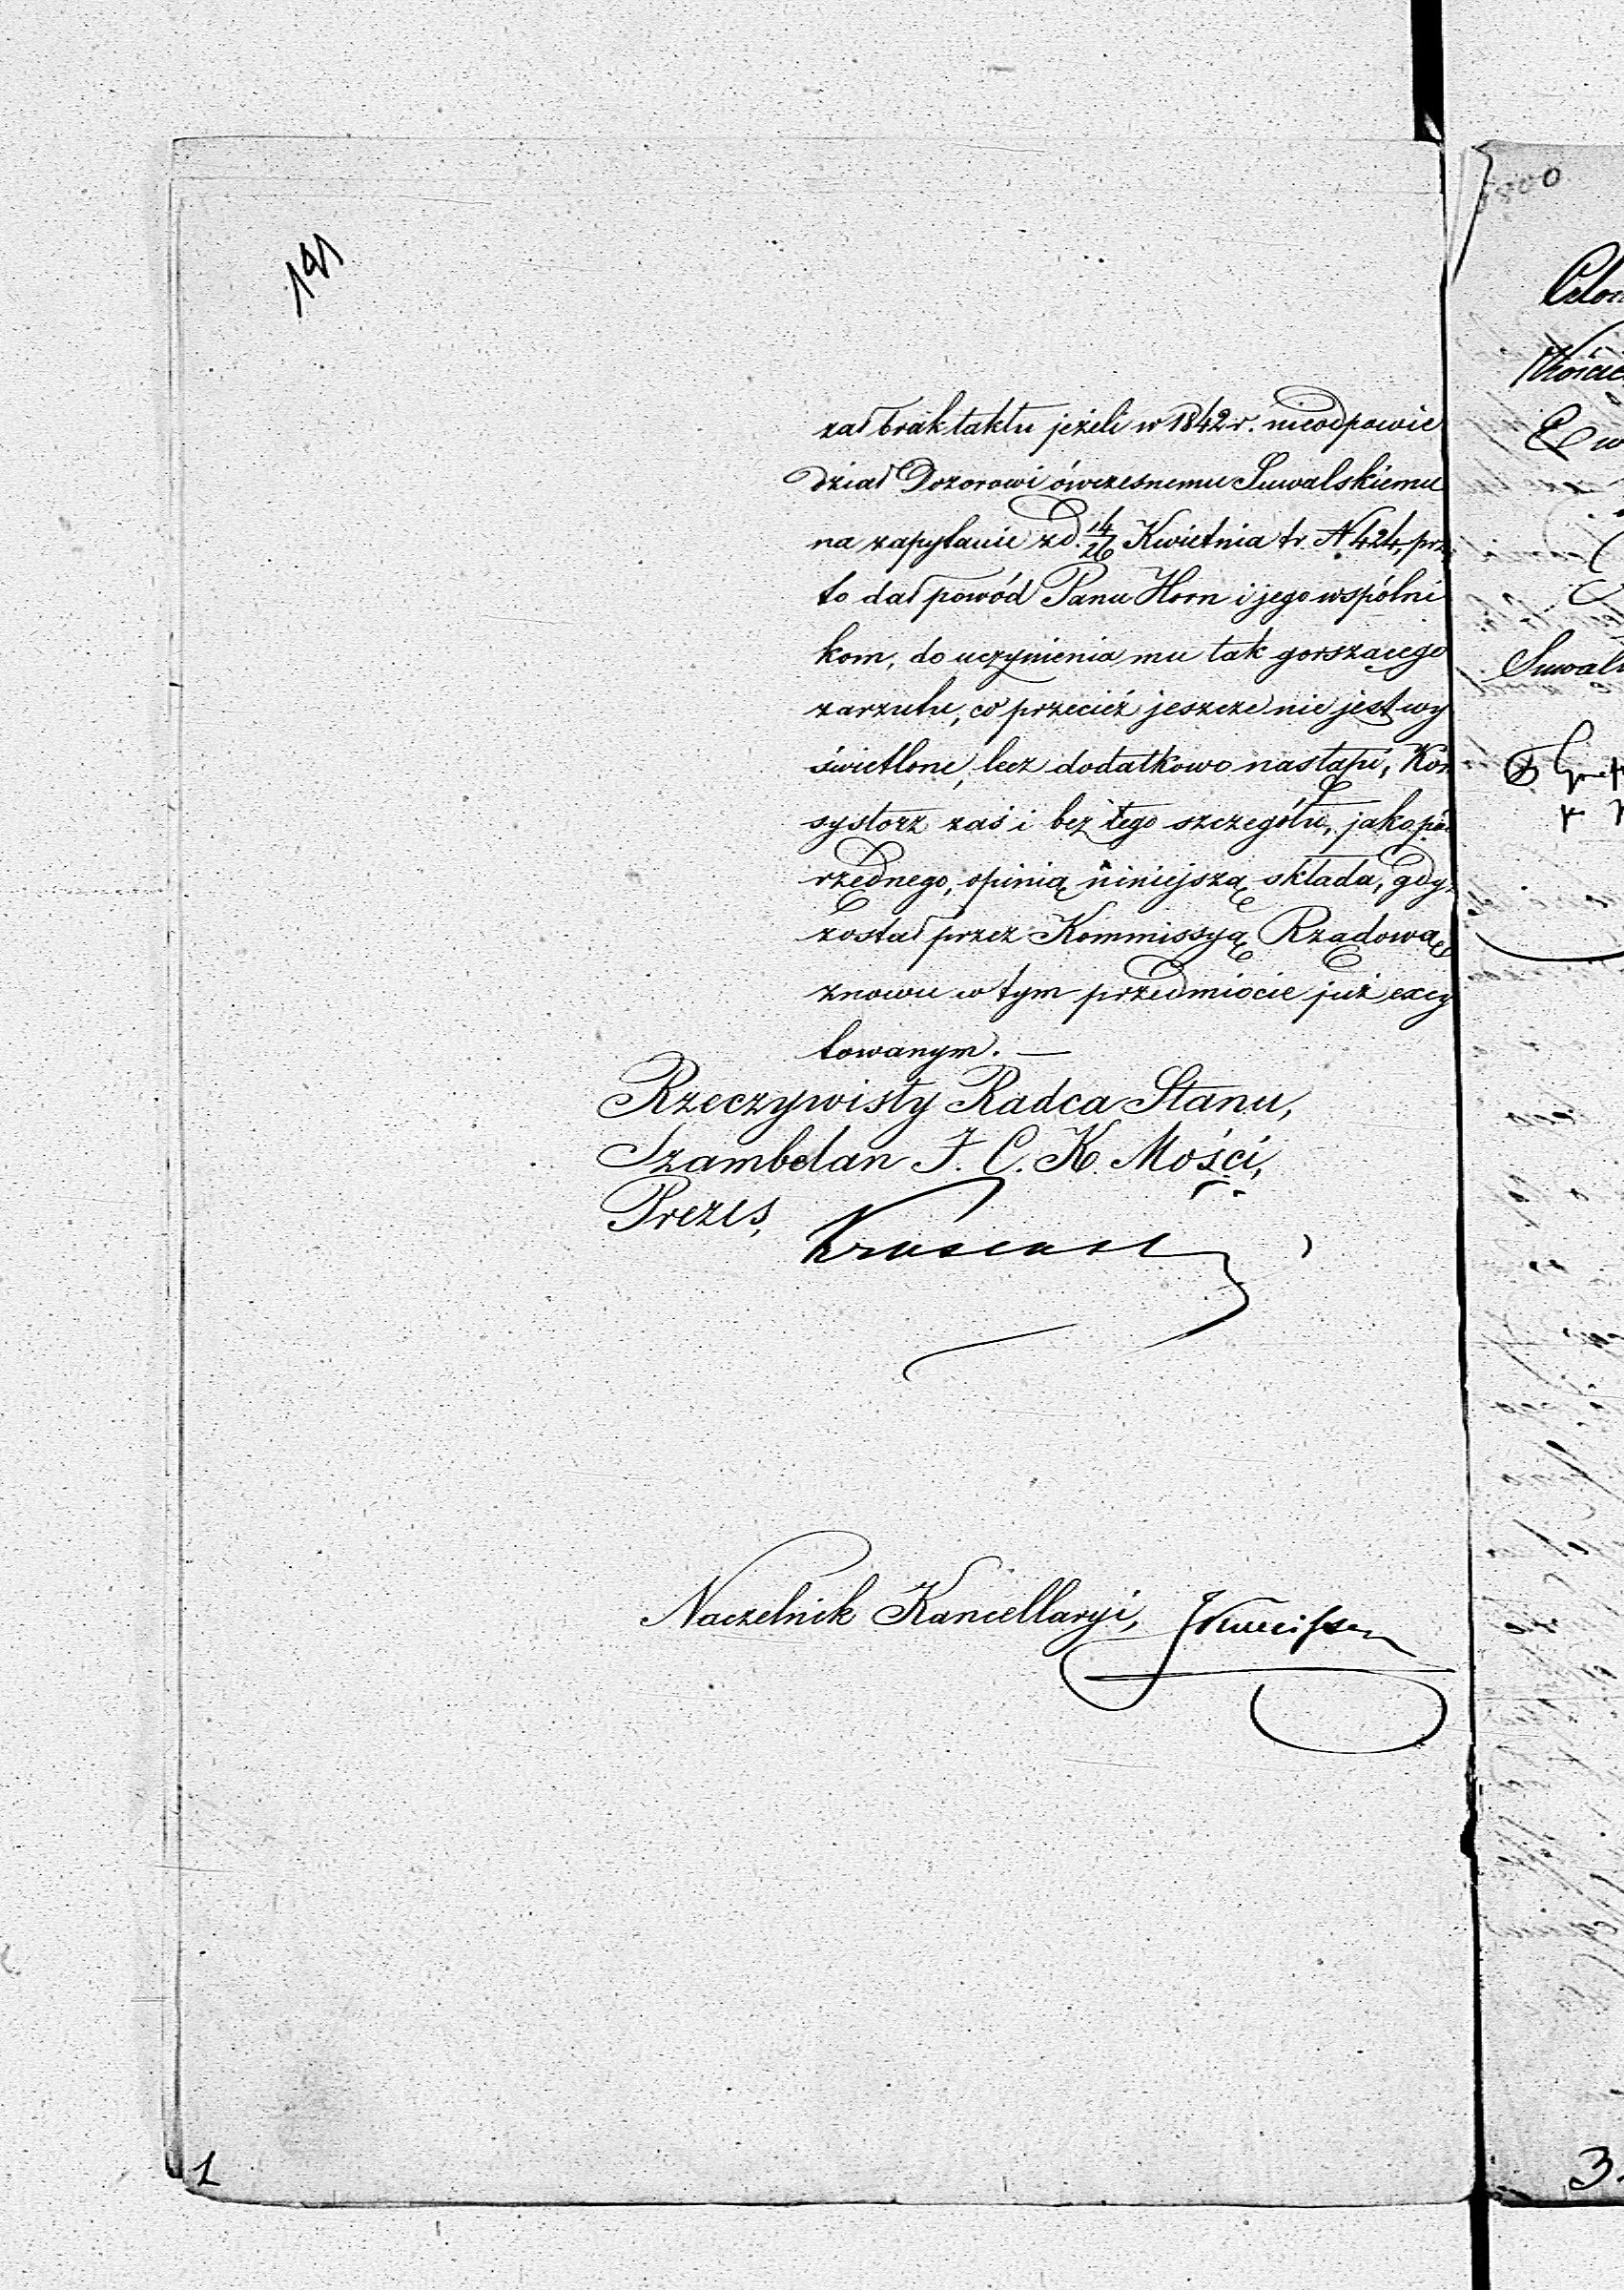 191
zał brak taktu jeżeli w 1842 r. nieodpowie
dział Dozorowi ówczesnemu Suwalskiemu
na zapytanie z d. 14/26 Kwietnia t r. N 424, prze
to dał powód Panu Horn i jego wspólni
kom, do uczynienia mu tak gorszącego
zarzutu, co przecież jeszcze nie jest wy
świetlone, lecz dodatkowo nastąpi, Kon
systorz zaś i bez tego szczegółu, jako po
rzędnego, opinią niniejszą składa, gdyż
został przez Kommissyą Rządową
znowu w tym przedmiocie już excy
towanym. —
Rzeczywisty Radca Stanu,
Szambelan J. C. K. Mości,
Prezes,
Naczelnik Kancellaryi,
1
3